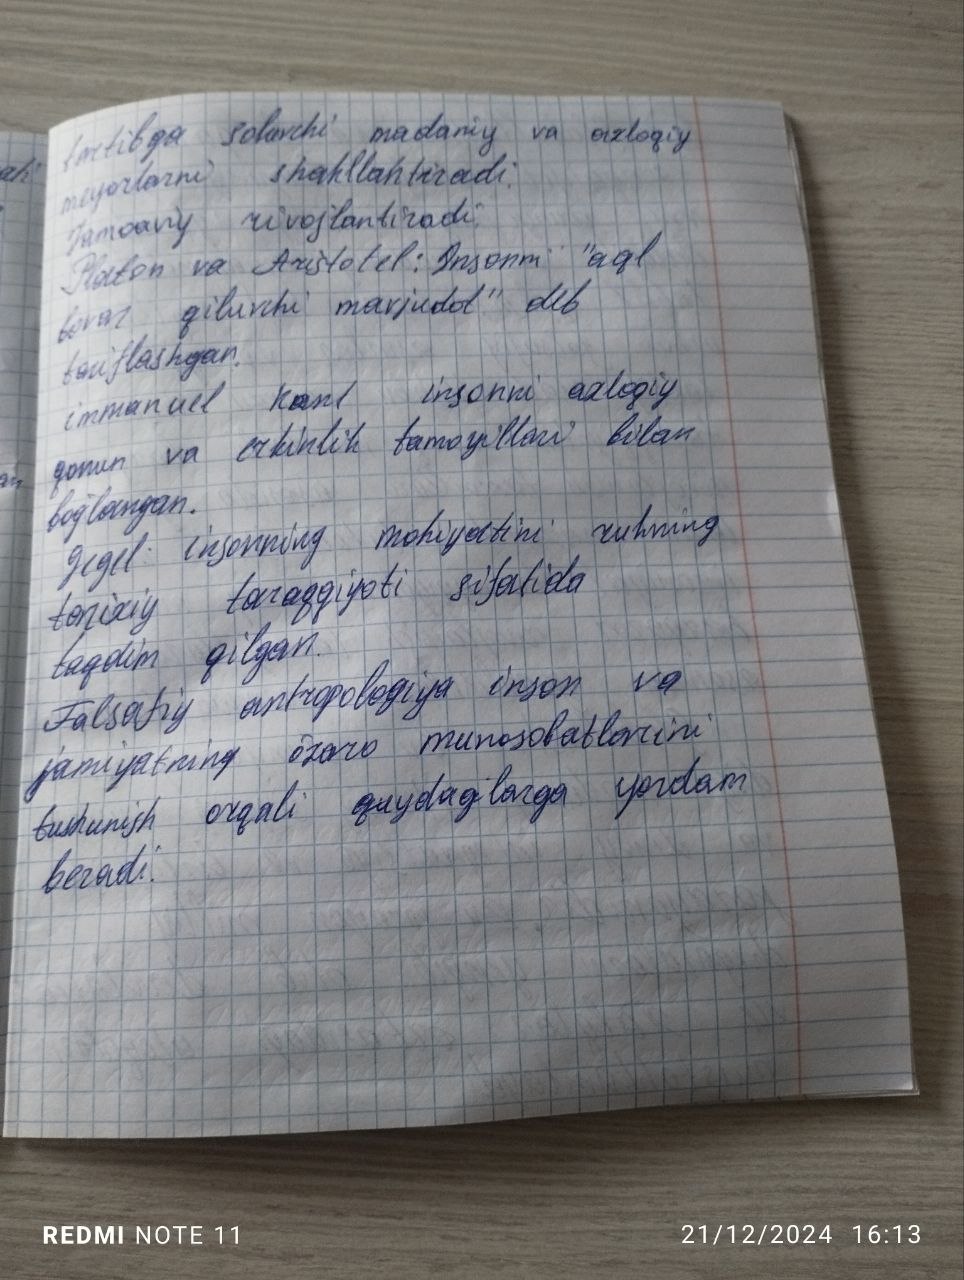 tartibga soluvchi madaniy va axloqiy
meyorlarni shakllahtiradi.
Jamoaviy rivojlantiradi.
Platon va Aristotel: Insonni "aql
bovar qiluvchi mavjudot" deb
tariflashgan.
immanuel Kant insonni axloqiy
qonun va erkinlik tamoyillari bilan
bog'langan.
Gegel: insonning mohiyatini ruhning
tarixiy taraqqiyoti sifatida
taqdim qilgan.
Falsafiy antropologiya inson va
jamiyatning o'zaro munosabatlarini
tushunish orqali quydagilarga yordam
beradi.
REDMI NOTE 11
21/12/2024 16:13